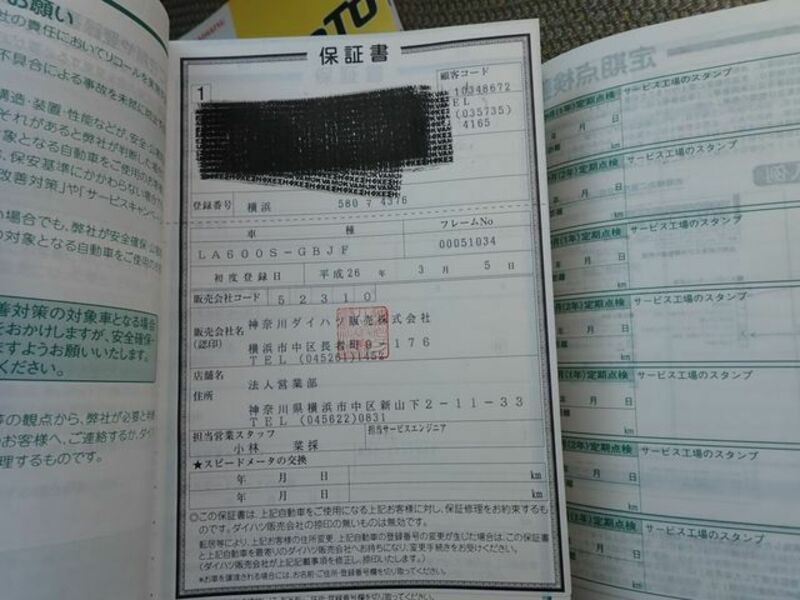 お願い
社の責任においてリコールを実施
不具合による事故を未然に防止
構造・装置・性能などが、安全・公害
それがあると弊社が判断した場合
対象となる自動車をご使用のお客様
保安基準にかかわらない場合
改善対策」や「サービスキャンペーン
の場合でも、弊社が安全確保・公
の対象となる自動車をご使用のお
善対策の対象車となる場合
をおかけしますが、安全確保
ますようお願いいたします。
ください。
等の観点から、弊社が必要と判断
のお客様へ、ご連絡するか、ダイ
理するものです。
保証書
1
顧客コード
10348672
TEL
(035735)
4165
登録番号 横浜 580 ﾃ 4376
車種 フレームNo
LA600S-GBJF 00051034
初度登録日 平成26 年 3 月 5 日
販売会社コード 52310
販売会社名 神奈川ダイハツ販売株式会社
(認印) 横浜市中区長者町9-176
TEL (045261)1452
店舗名 法人営業部
住所 神奈川県横浜市中区新山下2-11-33
TEL (045622)0831
担当営業スタッフ 担当サービスエンジニア
小林 菜採
★スピードメータの交換
年 月 日 km
年 月 日 km
◎この保証書は、上記自動車をご使用になる上記お客様に対し、保証修理をお約束するも
のです。ダイハツ販売会社の捺印の無いものは無効です。
転居等により、上記お客様の住所変更、上記自動車の登録番号の変更が生じた場合は、この保証書
と上記自動車を最寄りのダイハツ販売会社へお持ちになり、変更手続きをお受けください。
(ダイハツ販売会社が上記記載事項を修正し、捺印いたします。)
※お車を譲渡される場合には、お名前・ご住所・登録番号欄を切り取ってください。
定期点検
(1年)定期点検 サービス工場のスタンプ
年 月 日
km
(2年)定期点検 サービス工場のスタンプ
年 月 日
距離 km
(1年)定期点検 サービス工場のスタンプ
年 月 日
距離 km
(2年)定期点検 サービス工場のスタンプ
年 月 日
距離 km
(1年)定期点検 サービス工場のスタンプ
年 月 日
km
(2年)定期点検 サービス工場のスタンプ
年 月 日
km
(1年)定期点検 サービス工場のスタンプ
年 月 日
km